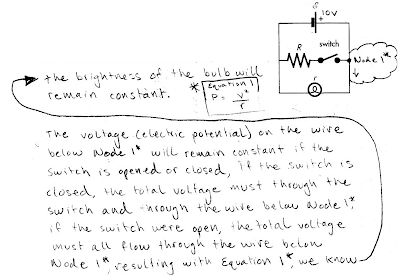 ε
10V
+
switch
R
Node 1*
r
the brightness of the bulb will
remain constant.
* Equation 1
P = V²/r
The voltage (electric potential) on the wire
below Node 1* will remain constant if the
switch is opened or closed, if the switch is
closed, the total voltage must through the
switch and through the wire below Node 1*,
if the switch were open, the total voltage
must all flow through the wire below
Node 1*, resulting with Equation 1*, we know